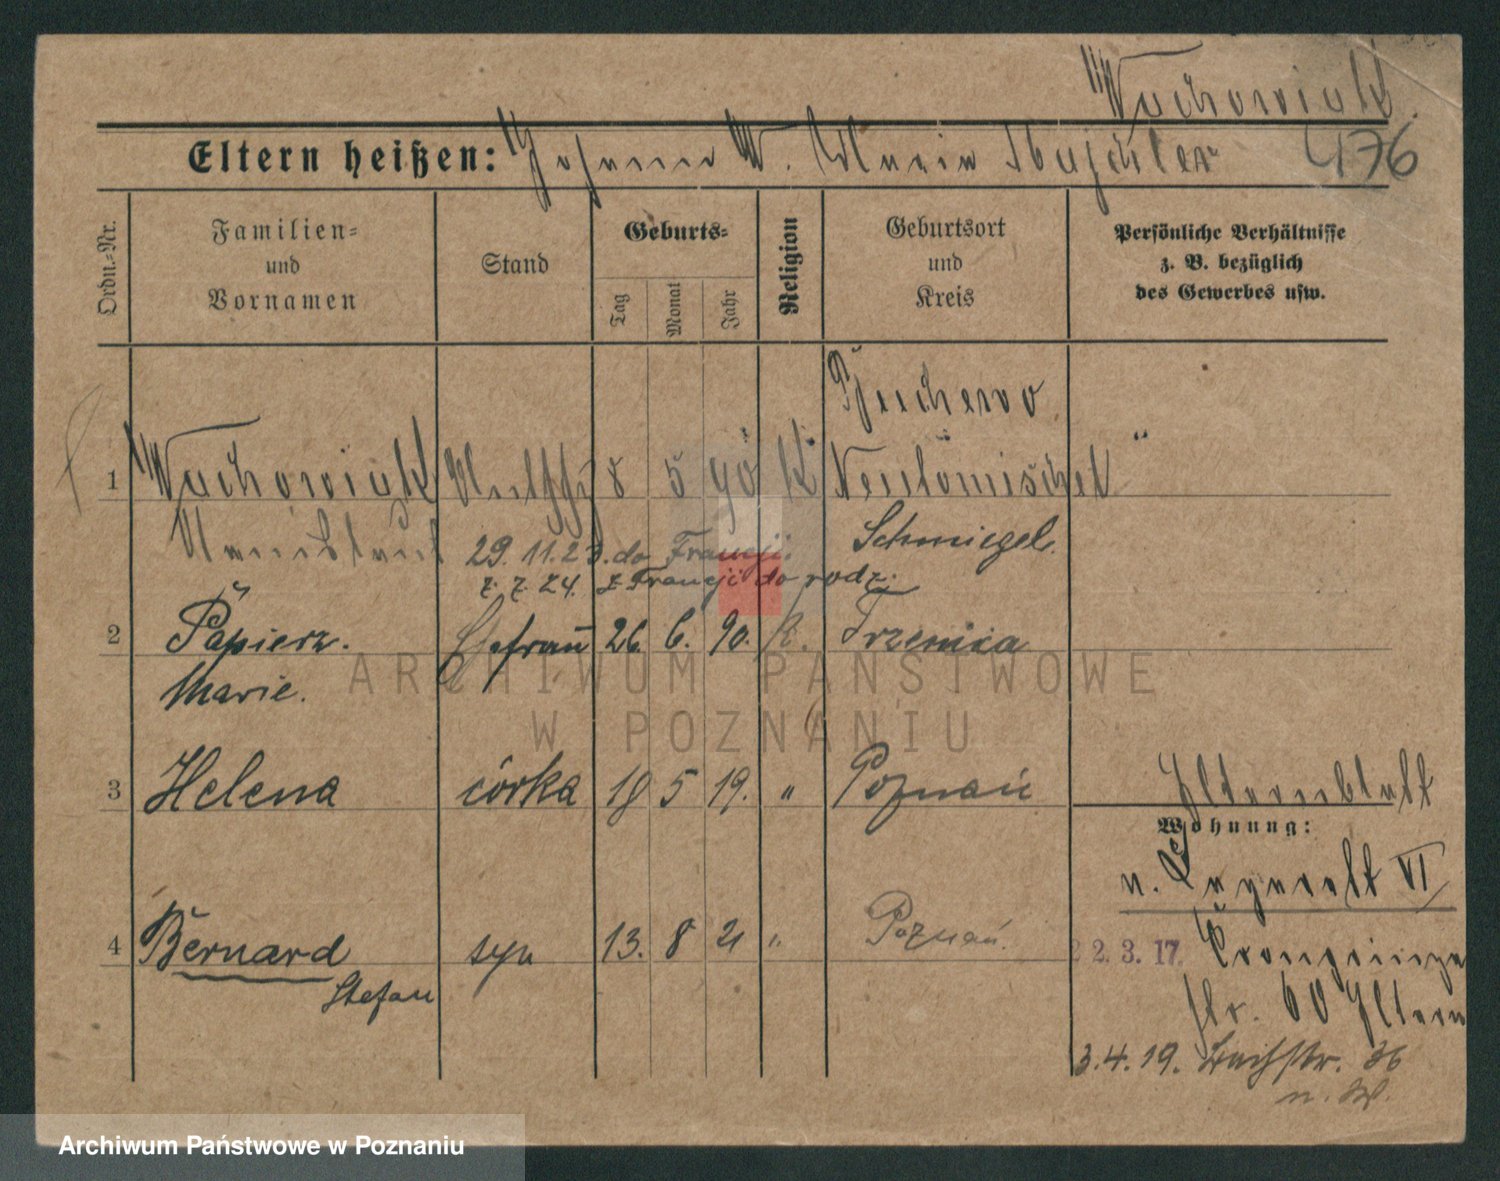 Wachowiak
Eltern heißen: Johann W. Maria
476
Ordn.-Nr.
Familien-
und
Vornamen
Stand
Geburts-
Tag
Monat
Jahr
Religion
Geburtsort
und
Kreis
Persönliche Verhältnisse
z. B. bezüglich
des Gewerbes usw.
1 Wachowiak 8 5 90 K
Neutomischel "
Schmiegel.
29.11.23. do Francji.
z Francji do rodz.
2 Papierz. Ehefrau 26. 6. 90. K. Trzenica
Marie.
ARCHIWUM PAŃSTWOWE
W POZNANIU
3 Helena córka 18 5 19. " Poznań Elternblatt
Wohnung:
VI
4 Bernard syn 13. 8 21 " Poznań.
22.3.17. Kronprinzen
Stefan
str. 60 Eltern
3.4.19. Bachstr. 36
n. W.
Archiwum Państwowe w Poznaniu